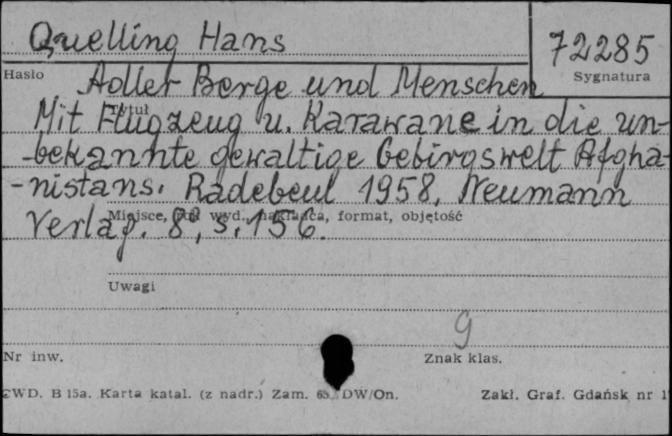 Quelling Hans
72285
Hasło
Sygnatura
Adler Berge und Menschen
Tytuł
Mit Flugzeug u. Karawane in die un-
-bekannte gewaltige Gebirgswelt Afgha-
-nistans. Radebeul 1958. Neumann
Miejsce, rok wyd., nakładca, format, objętość
Verlag. 8°, s. 156.
Uwagi
g
Nr inw.
Znak klas.
CWD. B 15a. Karta katal. (z nadr.) Zam. DW/On.
Zakł. Graf. Gdańsk nr 1